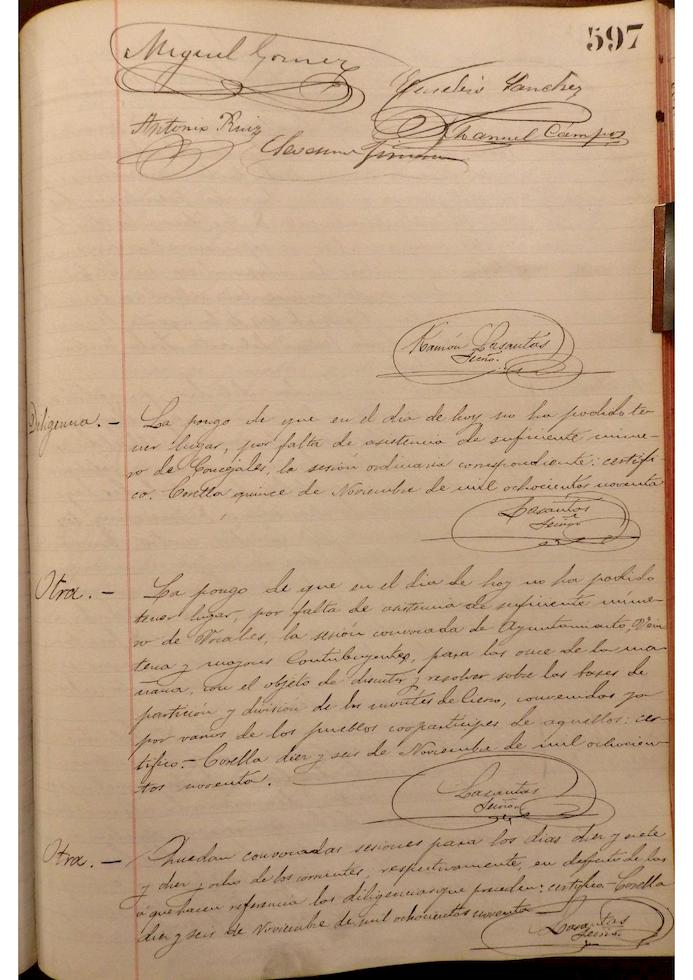 597
Miguel Gomez
Eusebio Sanchez
Antonio Ruiz
Manuel Campos
Ramón Lasantos
Srio.
Diligencia. — La pongo de que en el dia de hoy no ha podido te-
ner lugar, por falta de asistencia de suficiente núme-
ro de Concejales, la sesión ordinaria correspondiente: certifi-
co. Corella quince de Noviembre de mil ochocientos noventa
Lasantos
Srio.
Otra. — La pongo de que en el dia de hoy no ha podido
tener lugar, por falta de asistencia de suficiente núme-
ro de Vocales, la sesión convocada de Ayuntamiento, Vein-
tena y mayores Contribuyentes, para las once de la ma-
ñana, con el objeto de discutir y resolver sobre las bases de
partición y division de los montes de Cierzo, convenidas ya
por varios de los pueblos cooparticipes de aquellos: cer-
tifico. — Corella diez y seis de Noviembre de mil ochocien-
tos noventa.
Lasantos
Srio.
Otra. — Quedan convocadas sesiones para los dias diez y siete
y diez y ocho de los corrientes, respectivamente, en defecto de las
á que hacen referencia las diligencias que preceden: certifico — Corella
diez y seis de Noviembre de mil ochocientos noventa —
Lasantos
Srio.